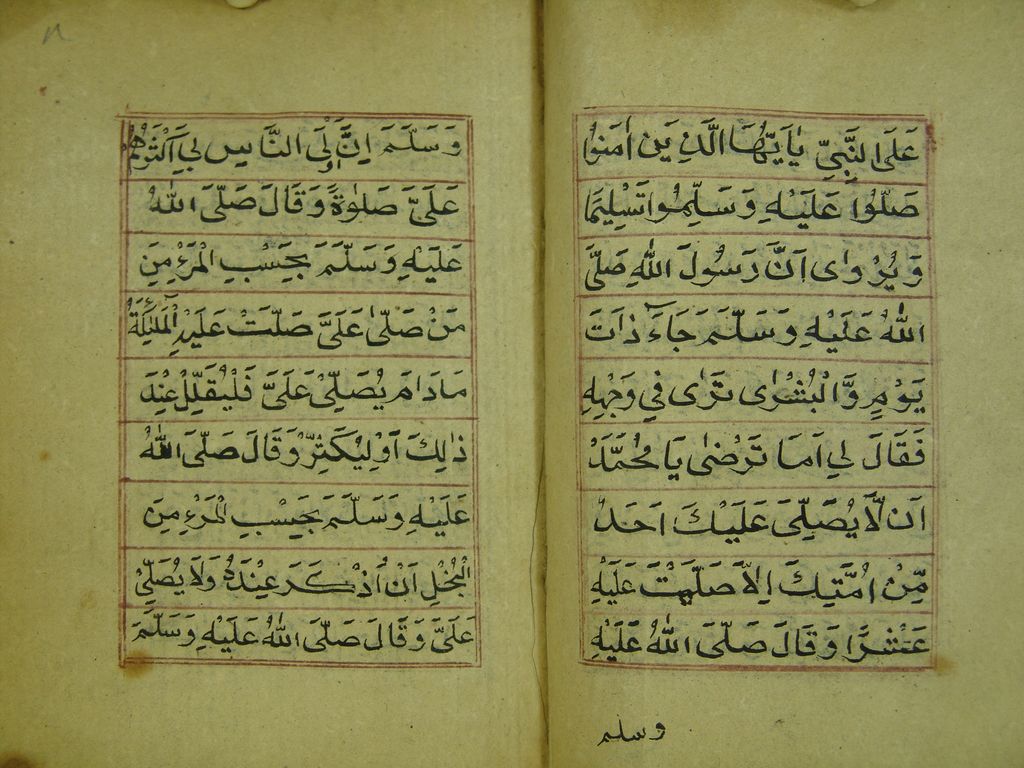 عَلَى النَّبِيِّ يٰاَيُّهَا الَّذِينَ اٰمَنُوا
صَلُّوا عَلَيْهِ وَسَلِّمُوا تَسْلِيمًا
وَيُرْوٰى اَنَّ رَسُولَ اللّٰهِ صَلَّى
اللّٰهُ عَلَيْهِ وَسَلَّمَ جَاءَ ذَاتَ
يَوْمٍ وَّالْبُشْرٰى تَرٰى فِي وَجْهِهِ
فَقَالَ لِي اَمَا تَرْضٰى يَا مُحَمَّدُ
اَنْ لَّا يُصَلِّيَ عَلَيْكَ اَحَدٌ
مِّنْ اُمَّتِكَ اِلَّا صَلَّيْتُ عَلَيْهِ
عَشْرًا وَقَالَ صَلَّى اللّٰهُ عَلَيْهِ
وسلم
وَسَلَّمَ اِنَّ اَوْلَى النَّاسِ بِي اَكْثَرُهُمْ
عَلَيَّ صَلٰوةً وَقَالَ صَلَّى اللّٰهُ
عَلَيْهِ وَسَلَّمَ بِحَسْبِ الْمَرْءِ مِنَ
مَنْ صَلّٰى عَلَيَّ صَلَّتْ عَلَيْهِ الْمَلٰئِكَةُ
مَادَامَ يُصَلِّي عَلَيَّ فَلْيُقَلِّلْ عِنْدَ
ذٰلِكَ اَوْ لِيُكَثِّرْ وَقَالَ صَلَّى اللّٰهُ
عَلَيْهِ وَسَلَّمَ بِحَسْبِ الْمَرْءِ مِنَ
الْبُخْلِ اَنْ اُذْكَرَ عِنْدَهُ وَلَا يُصَلِّي
عَلَيَّ وَقَالَ صَلَّى اللّٰهُ عَلَيْهِ وَسَلَّمَ